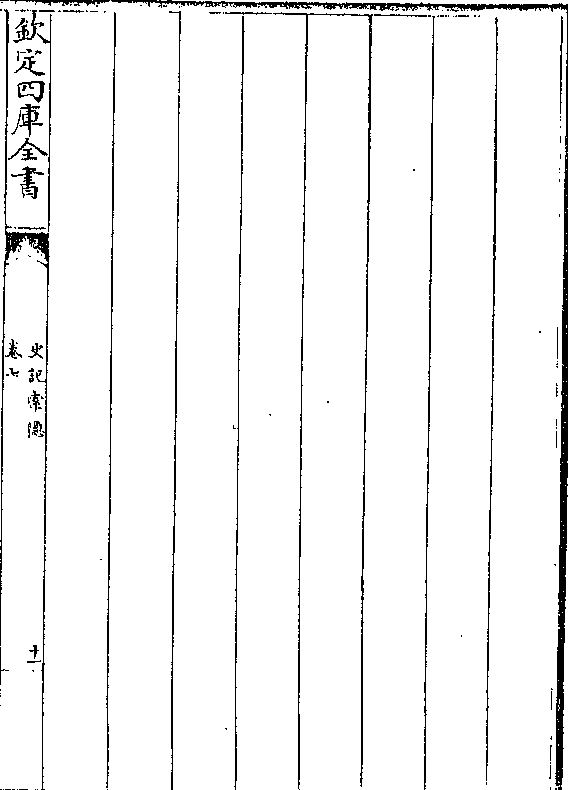 欽定四庫全書
史記索隱
卷七
十一